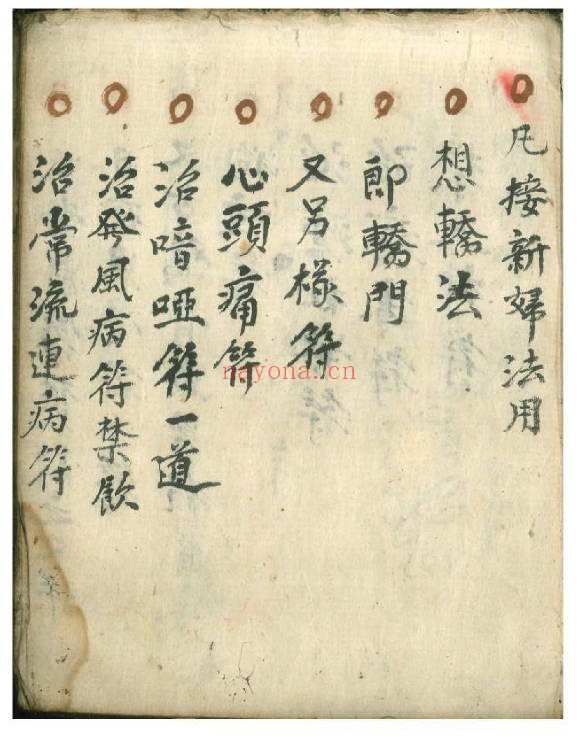 凡接新婦法用
想轎法
郎轎門
又另樣符
心頭痛符
治喑啞符一道
治發風病符禁
治常流連病符
nayona.cn